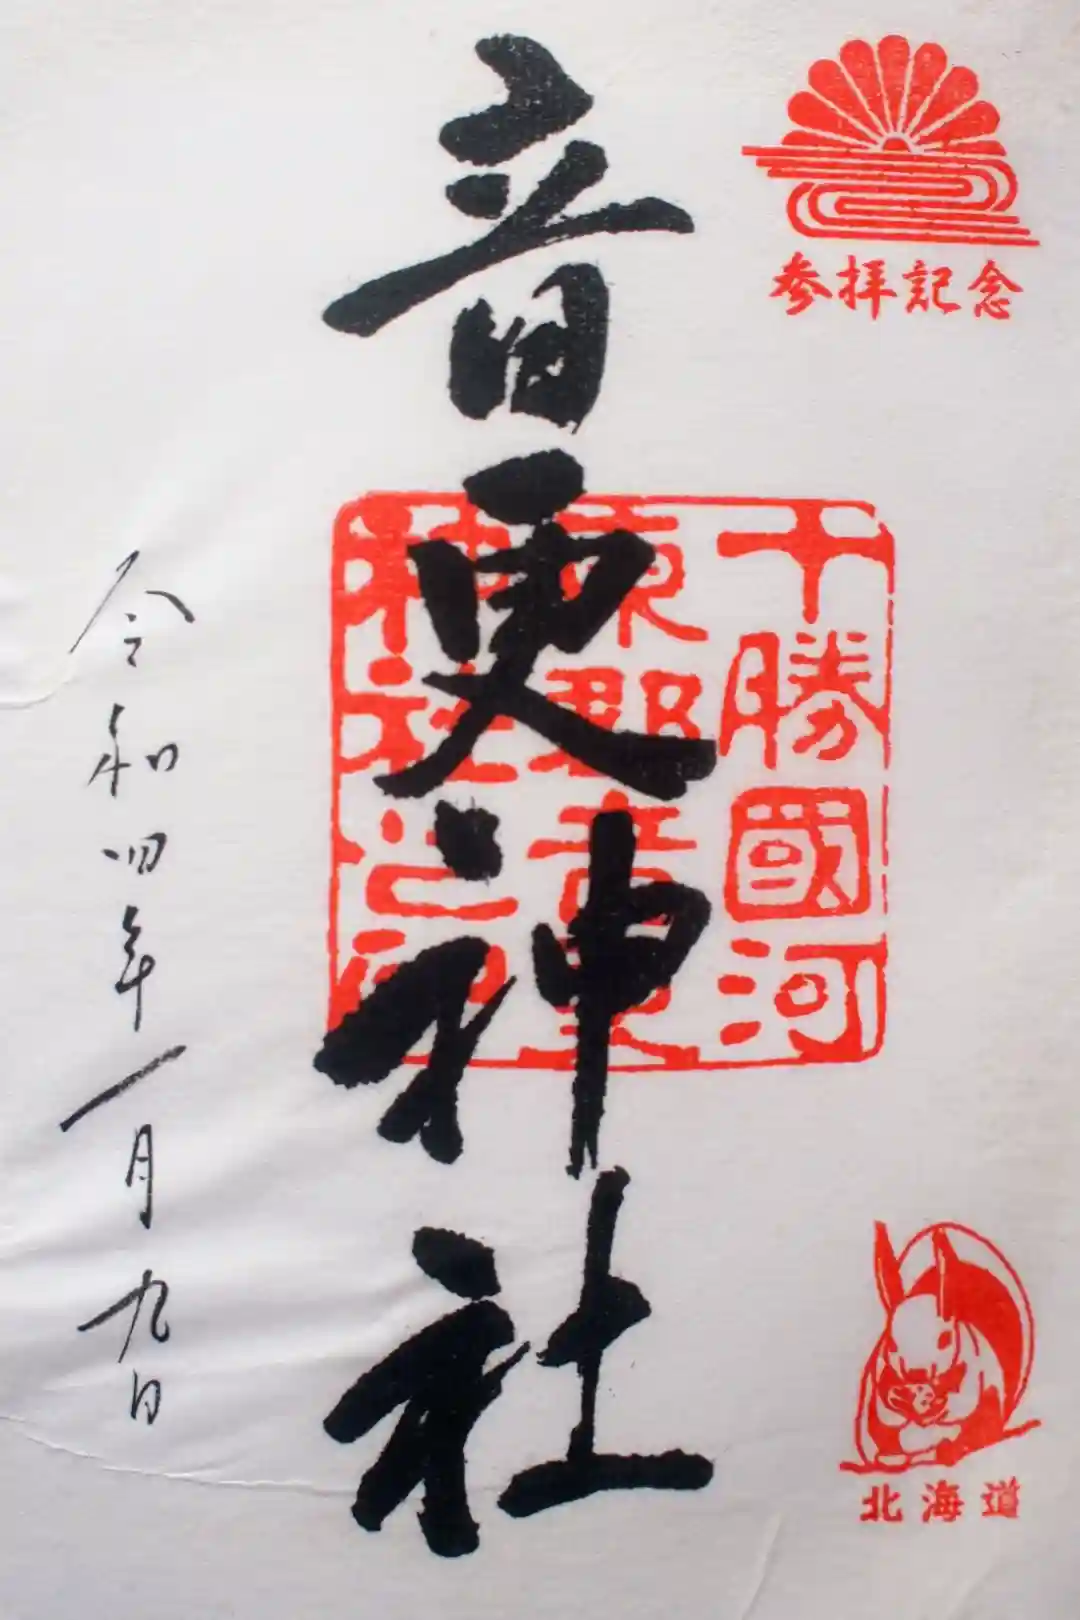 参拝記念
十勝國河
東郡音更
神社之印
音更神社
北海道
令和四年一月九日